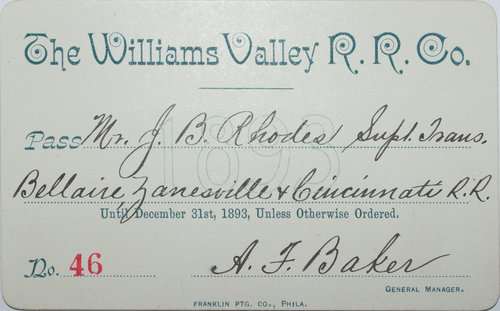 The Williams Valley R. R. Co.
1893
Pass Mr. J. B. Rhodes Supt. Trans.
Bellaire, Zanesville & Cincinnati R.R.
Until December 31st, 1893, Unless Otherwise Ordered.
No. 46 A. F. Baker
GENERAL MANAGER.
FRANKLIN PTG. CO., PHILA.